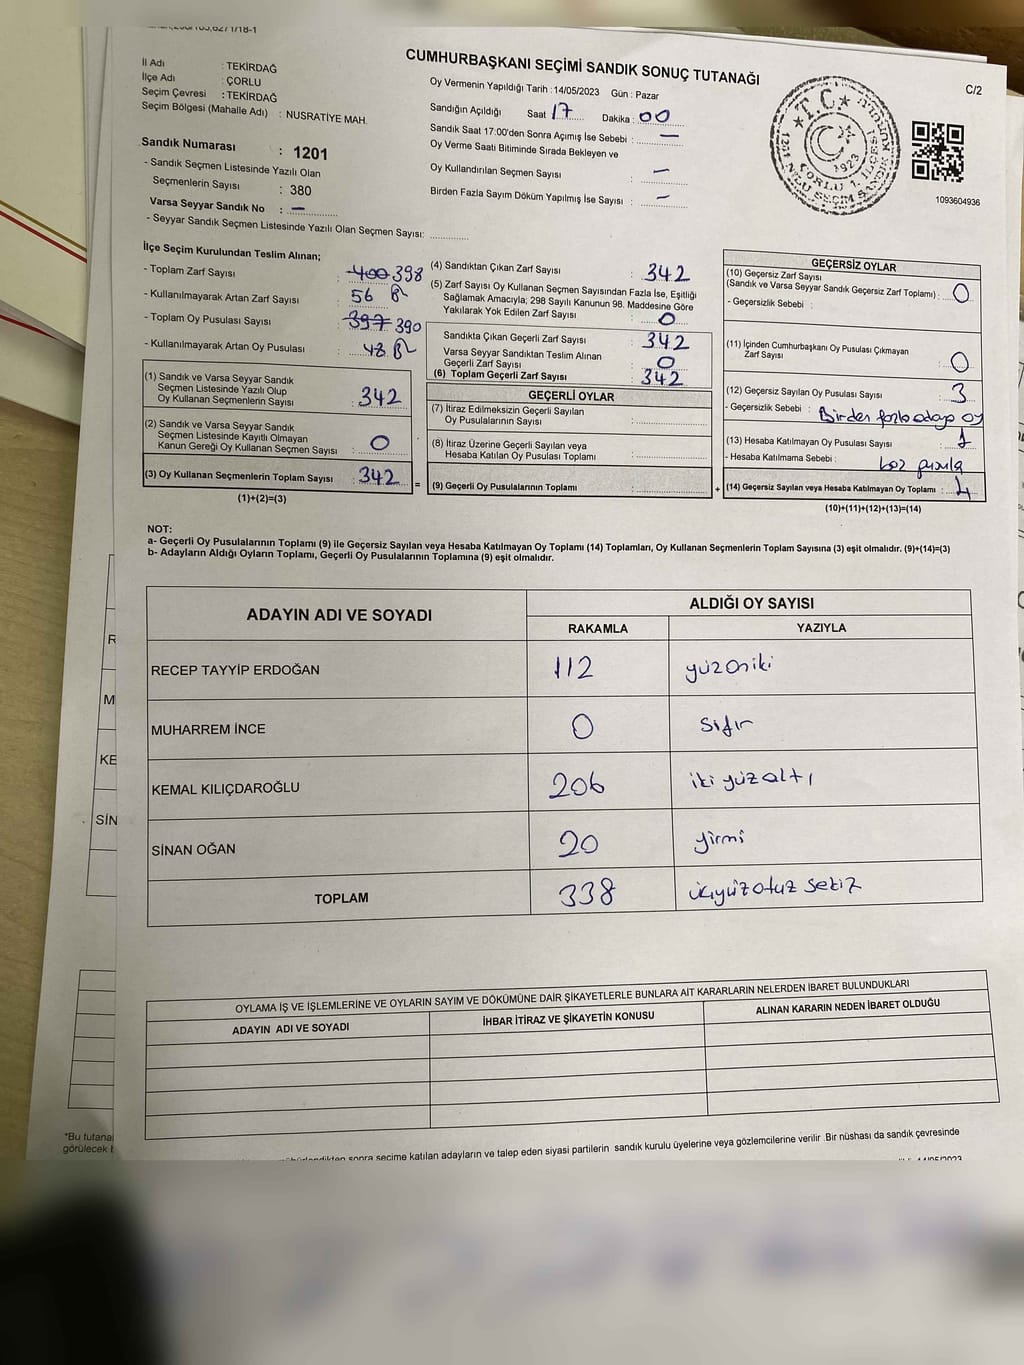 CUMHURBAŞKANI SEÇİMİ SANDIK SONUÇ TUTANAĞI
C/2
İl Adı : TEKİRDAĞ
İlçe Adı : ÇORLU
Seçim Çevresi : TEKİRDAĞ
Seçim Bölgesi (Mahalle Adı) : NUSRATİYE MAH.
Sandık Numarası : 1201
- Sandık Seçmen Listesinde Yazılı Olan
Seçmenlerin Sayısı : 380
Varsa Seyyar Sandık No : -
- Seyyar Sandık Seçmen Listesinde Yazılı Olan Seçmen Sayısı:
Oy Vermenin Yapıldığı Tarih : 14/05/2023 Gün : Pazar
Sandığın Açıldığı Saat 17 Dakika : 00
Sandık Saat 17:00'den Sonra Açımış İse Sebebi : -
Oy Verme Saati Bitiminde Sırada Bekleyen ve
Oy Kullandırılan Seçmen Sayısı : -
Birden Fazla Sayım Döküm Yapılmış İse Sayısı : -
T.C.
ÇORLU 1. İLÇESİ
1923
1093604936
İlçe Seçim Kurulundan Teslim Alınan;
- Toplam Zarf Sayısı : 400 398
- Kullanılmayarak Artan Zarf Sayısı : 56
- Toplam Oy Pusulası Sayısı : 397 390
- Kullanılmayarak Artan Oy Pusulası : 48
(1) Sandık ve Varsa Seyyar Sandık
Seçmen Listesinde Yazılı Olup
Oy Kullanan Seçmenlerin Sayısı : 342
(2) Sandık ve Varsa Seyyar Sandık
Seçmen Listesinde Kayıtlı Olmayan
Kanun Gereği Oy Kullanan Seçmen Sayısı : 0
(3) Oy Kullanan Seçmenlerin Toplam Sayısı : 342
(1)+(2)=(3)
(4) Sandıktan Çıkan Zarf Sayısı : 342
(5) Zarf Sayısı Oy Kullanan Seçmen Sayısından Fazla İse, Eşitliği
Sağlamak Amacıyla; 298 Sayılı Kanunun 98. Maddesine Göre
Yakılarak Yok Edilen Zarf Sayısı : 0
Sandıkta Çıkan Geçerli Zarf Sayısı : 342
Varsa Seyyar Sandıktan Teslim Alınan
Geçerli Zarf Sayısı : 0
(6) Toplam Geçerli Zarf Sayısı : 342
GEÇERLİ OYLAR
(7) İtiraz Edilmeksizin Geçerli Sayılan
Oy Pusulalarının Sayısı :
(8) İtiraz Üzerine Geçerli Sayılan veya
Hesaba Katılan Oy Pusulaları Toplamı :
= (9) Geçerli Oy Pusulalarının Toplamı :
GEÇERSİZ OYLAR
(10) Geçersiz Zarf Sayısı
(Sandık ve Varsa Seyyar Sandık Geçersiz Zarf Toplamı) : 0
- Geçersizlik Sebebi :
(11) İçinden Cumhurbaşkanı Oy Pusulası Çıkmayan
Zarf Sayısı : 0
(12) Geçersiz Sayılan Oy Pusulası Sayısı : 3
- Geçersizlik Sebebi : Birden fazla adaya oy
(13) Hesaba Katılmayan Oy Pusulası Sayısı : 1
- Hesaba Katılmama Sebebi : boz pusula
+ (14) Geçersiz Sayılan veya Hesaba Katılmayan Oy Toplamı : 4
(10)+(11)+(12)+(13)=(14)
NOT:
a- Geçerli Oy Pusulalarının Toplamı (9) ile Geçersiz Sayılan veya Hesaba Katılmayan Oy Toplamı (14) Toplamları, Oy Kullanan Seçmenlerin Toplam Sayısına (3) eşit olmalıdır. (9)+(14)=(3)
b- Adayların Aldığı Oyların Toplamı, Geçerli Oy Pusulalarının Toplamına (9) eşit olmalıdır.
ADAYIN ADI VE SOYADI ALDIĞI OY SAYISI
RAKAMLA YAZIYLA
RECEP TAYYİP ERDOĞAN 112 yüzoniki
MUHARREM İNCE 0 Sıfır
KEMAL KILIÇDAROĞLU 206 iki yüz altı
SİNAN OĞAN 20 yirmi
TOPLAM 338 üçyüzotuz sekiz
OYLAMA İŞ VE İŞLEMLERİNE VE OYLARIN SAYIM VE DÖKÜMÜNE DAİR ŞİKAYETLERLE BUNLARA AİT KARARLARIN NELERDEN İBARET BULUNDUKLARI
ADAYIN ADI VE SOYADI İHBAR İTİRAZ VE ŞİKAYETİN KONUSU ALINAN KARARIN NEDEN İBARET OLDUĞU
*Bu tutana
görülecek
sonra seçime katılan adayların ve talep eden siyasi partilerin sandık kurulu üyelerine veya gözlemcilerine verilir .Bir nüshası da sandık çevresinde